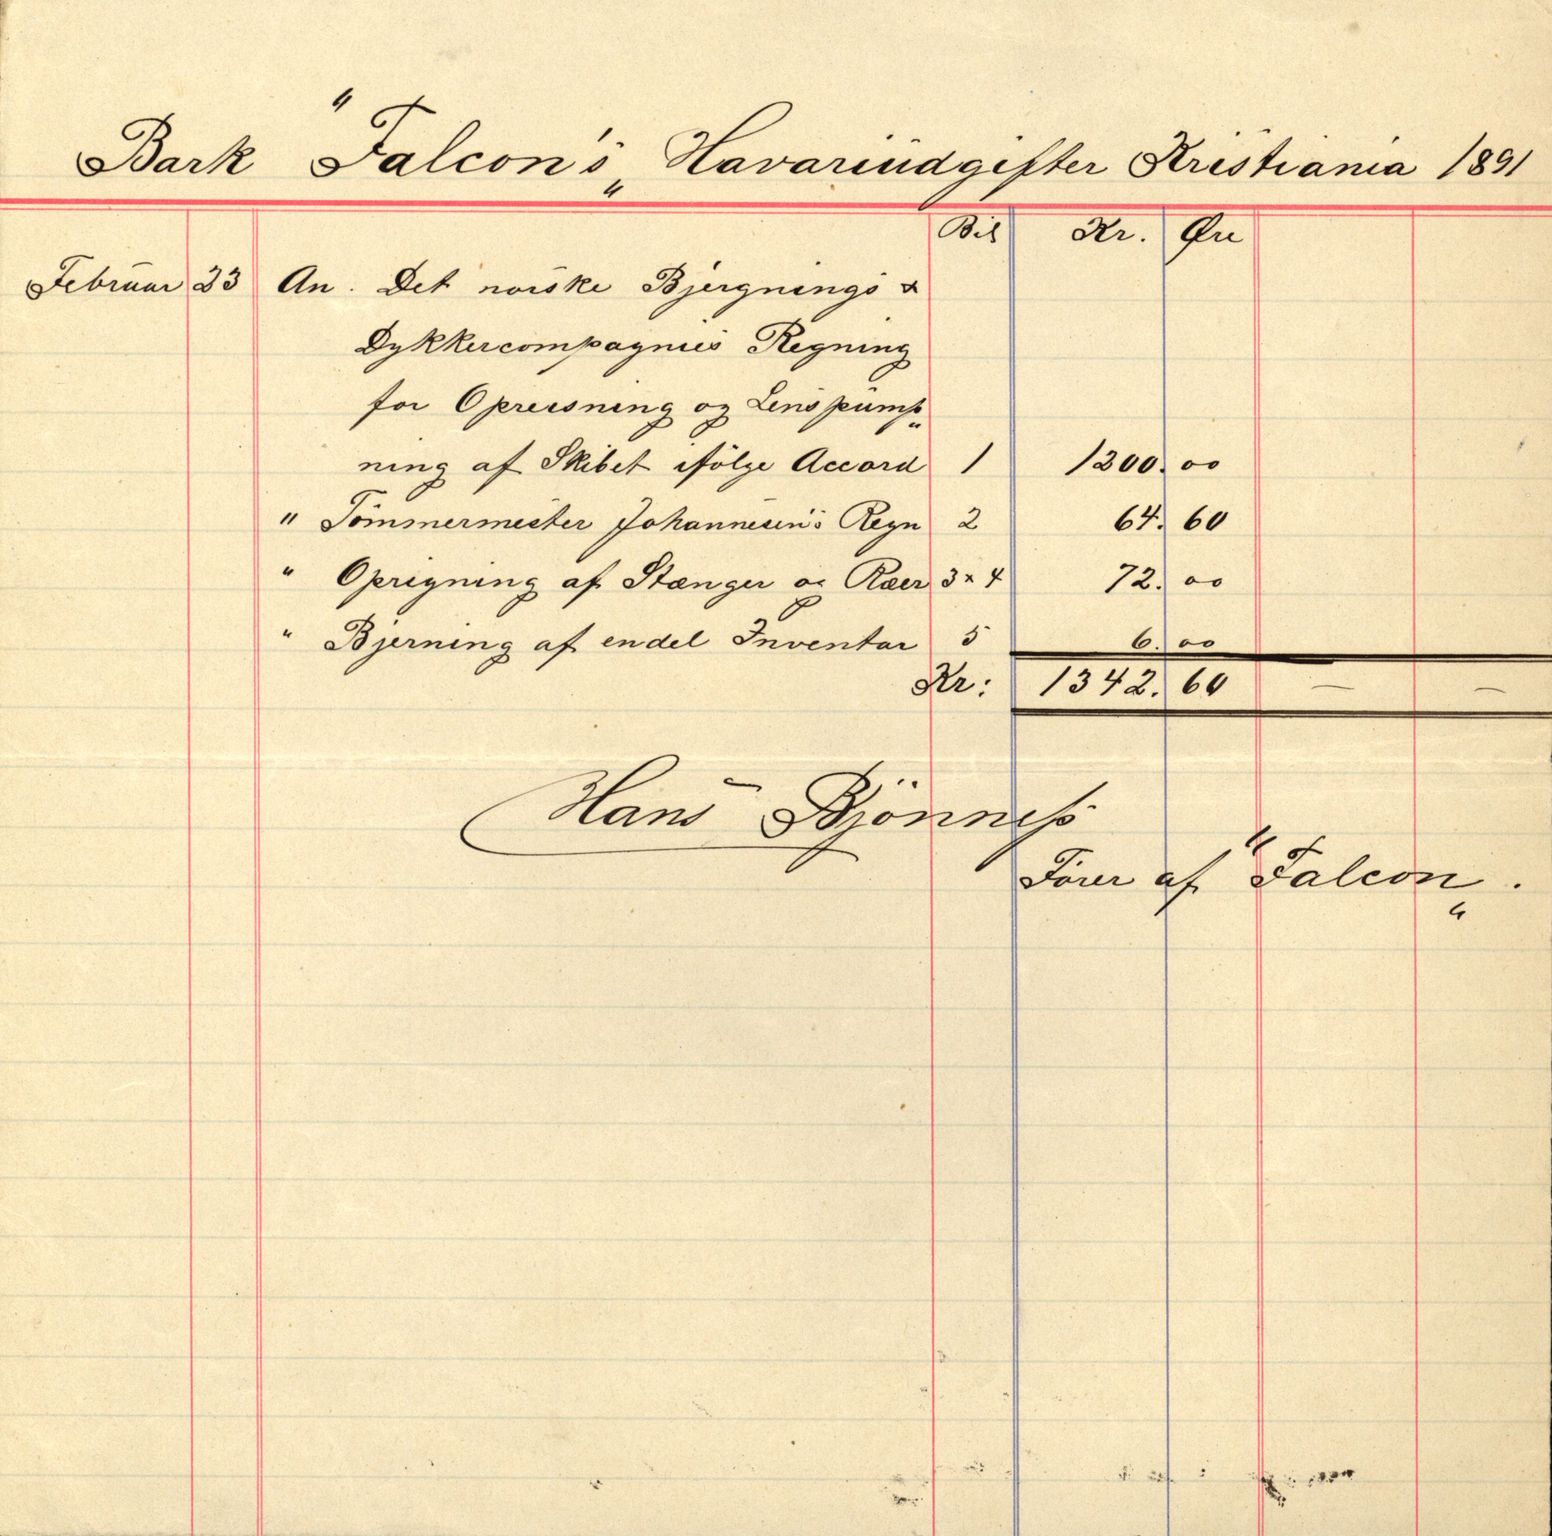 Bark "Falcon's" Havariudgifter Kristiania 1891
Bil Kr. Øre
Februar 23 An. Det norske Bjergnings &
Dykkercompagnies Regning
for Opreisning og Lenspump=
ning af Skibet ifölge Accord 1 1200. 00
" Tömmermester Johannesen's Regn 2 64. 60
" Oprigning af Stænger og Raer 3 & 4 72. 00
" Bjerning af endel Inventar 5 6. 00
Kr: 1342. 60 — —
Hans Bjönness
Förer af "Falcon".